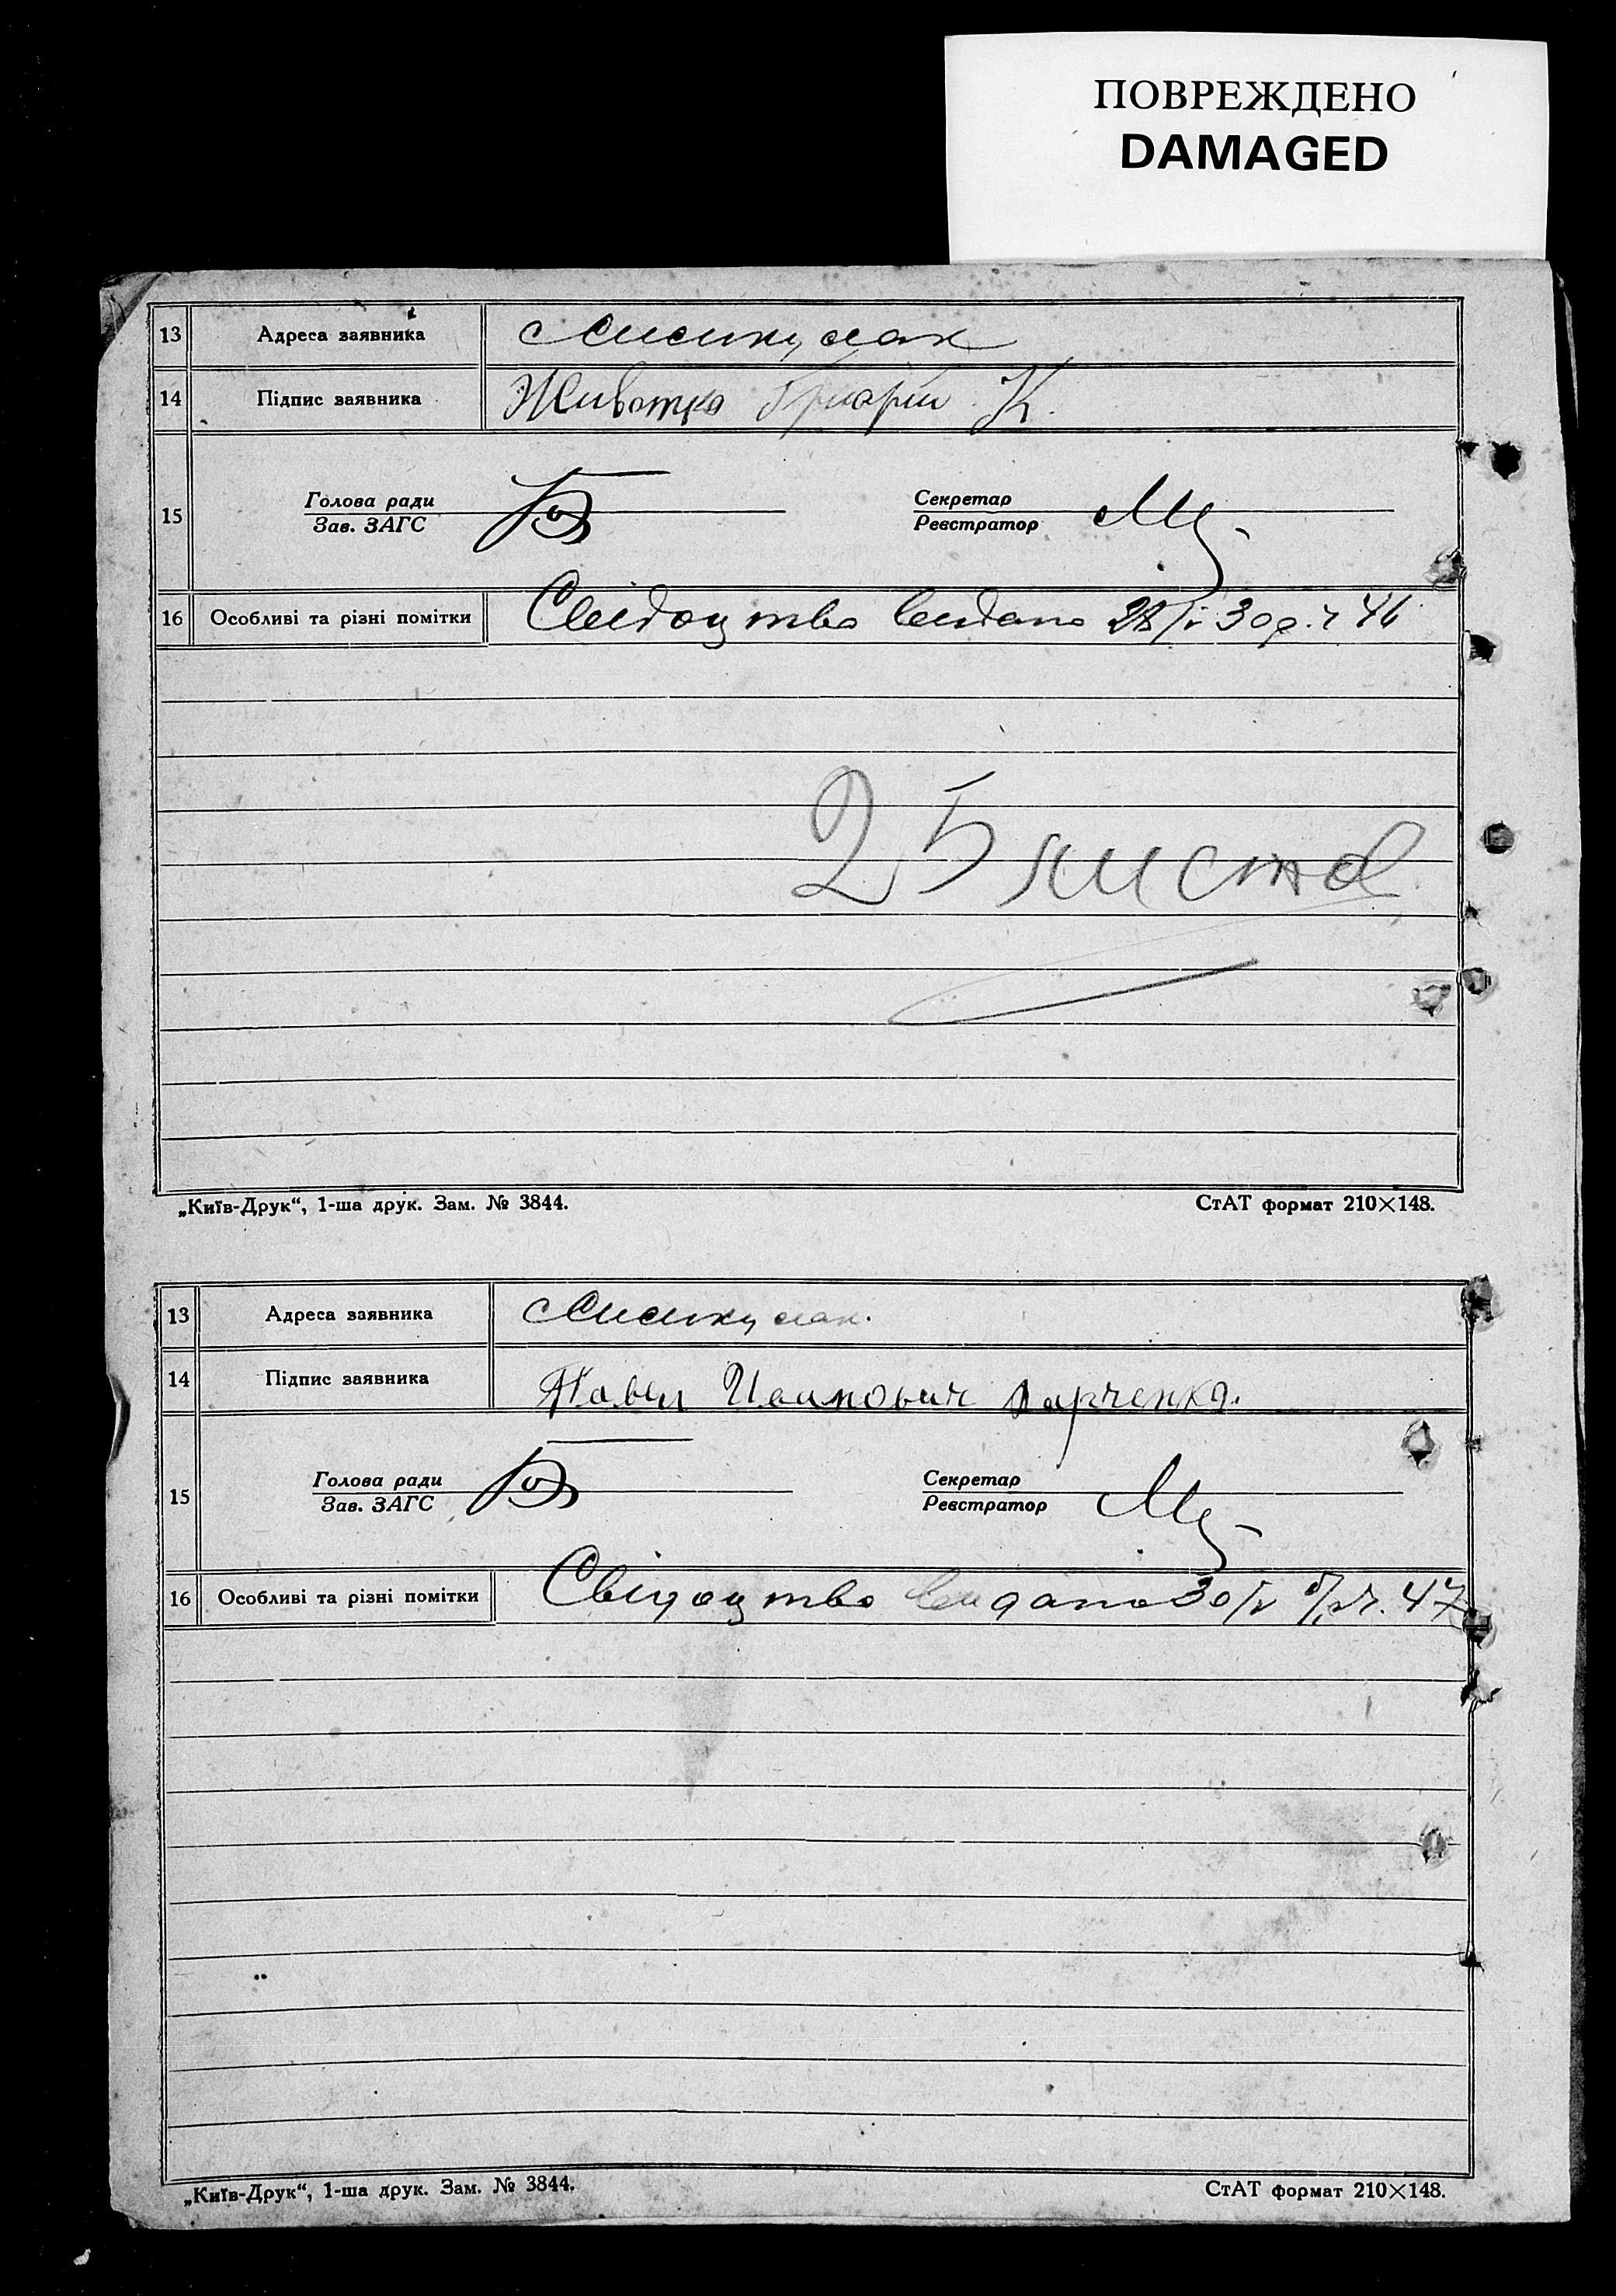 ПОВРЕЖДЕНО
DAMAGED
13 Адреса заявника
14 Підпис заявника Животко К.
15 Голова ради Секретар
Зав. ЗАГС Реєстратор
16 Особливі та різні помітки Свидоцтво видано 28/V 30 р. ч 46
25 листа
„Київ-Друк“, 1-ша друк. Зам. № 3844. СтАТ формат 210×148.
13 Адреса заявника
14 Підпис заявника Павел Иванович Харченко.
15 Голова ради Секретар
Зав. ЗАГС Реєстратор
16 Особливі та різні помітки Свідоцтво видано 30/V ч. 47
„Київ-Друк“, 1-ша друк. Зам. № 3844. СтАТ формат 210×148.